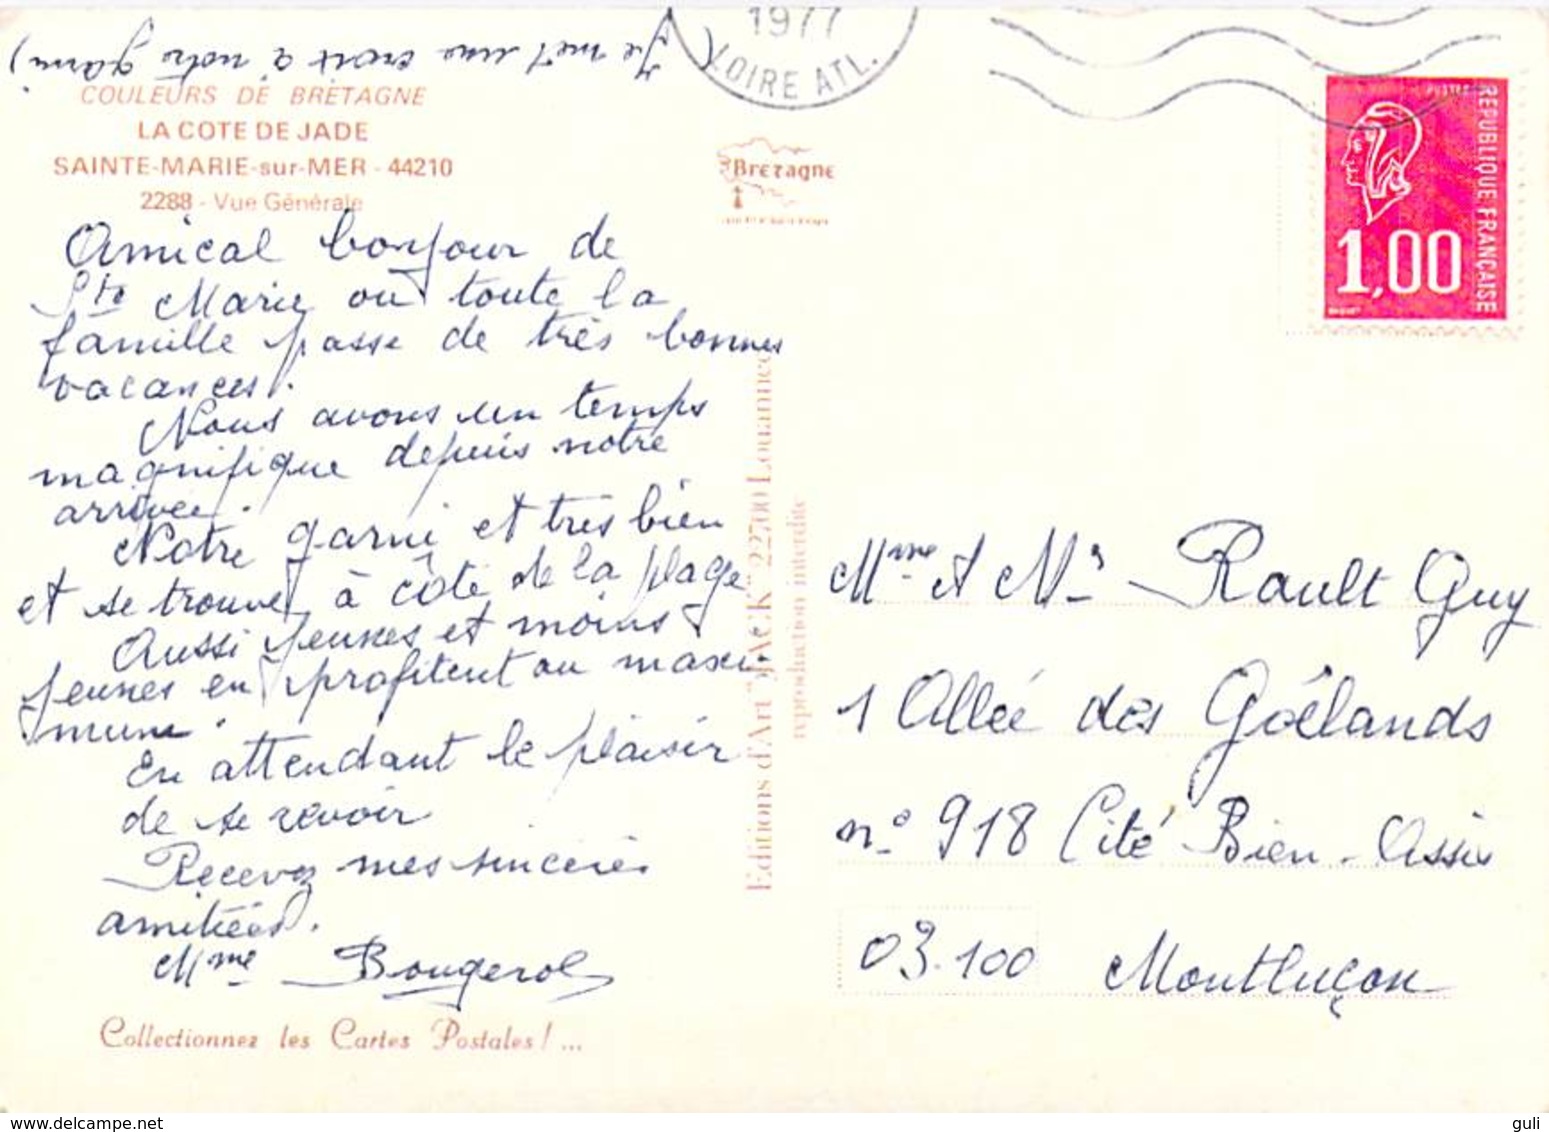 (Je met une croix à notre garni)
COULEURS DE BRETAGNE
LA COTE DE JADE
SAINTE-MARIE-sur-MER - 44210
2288 - Vue Générale
Amical bonjour de
Ste Marie où toute la
famille passe de très bonnes
vacances.
Nous avons un temps
magnifique depuis notre
arrivée.
Notre garni et très bien
et se trouve à côté de la plage
Aussi jeunes et moins
jeunes en profitent au maxi-
mum.
En attendant le plaisir
de se revoir
Recevez mes sincères
amitiées.
Mme Bougerol
Collectionnez les Cartes Postales ! ...
Editions d'Art "JACK" 22700 Louannec
reproduction interdite
Bretagne
1977
LOIRE ATL.
POSTES
REPUBLIQUE FRANÇAISE
1,00
Mme et Mr Rault Guy
1 Allée des Goélands
n° 918 Cité Bien-Assis
03.100 Montluçon
guli